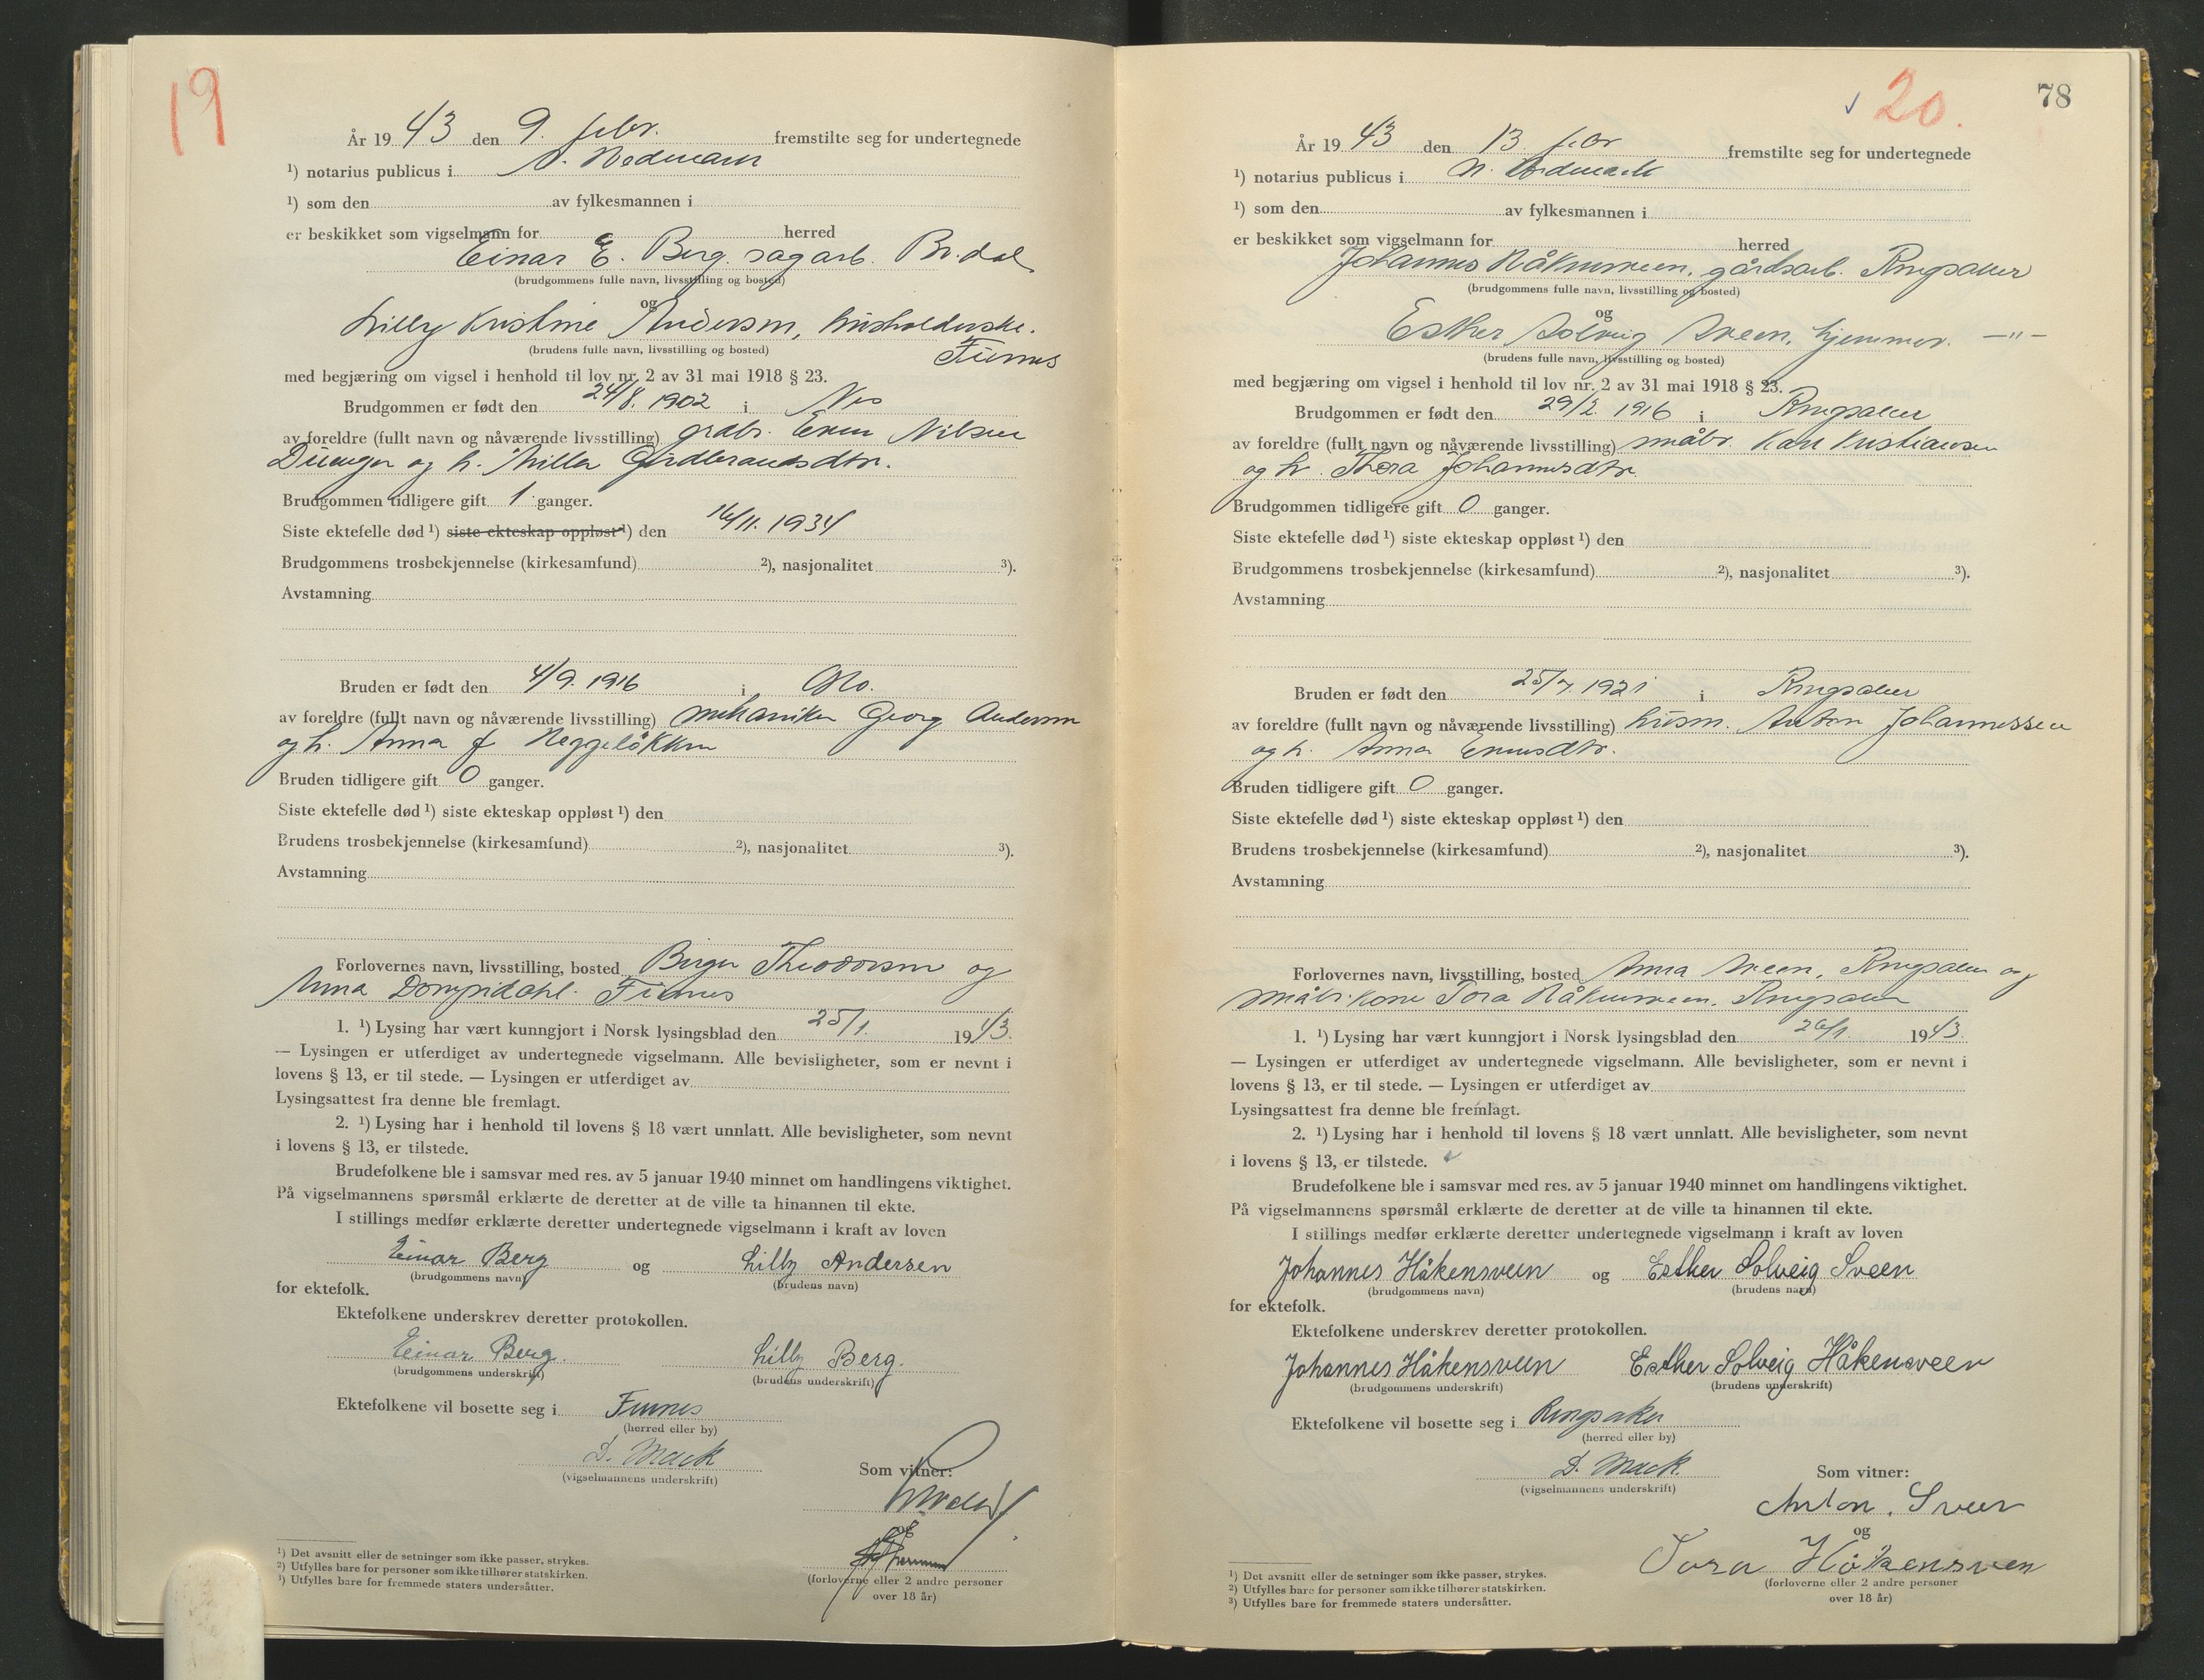 19
År 19 43 den 9. febr. fremstilte seg for undertegnede
¹) notarius publicus i N. Hedmark
¹) som den av fylkesmannen i
er beskikket som vigselmann for herred
Einar E. Berg. sagarb. Br.dal
(brudgommens fulle navn, livsstilling og bosted)
og
Lilly Kristine Andersen, husholderske.
(brudens fulle navn, livsstilling og bosted)
Furnes
med begjæring om vigsel i henhold til lov nr. 2 av 31 mai 1918 § 23.
Brudgommen er født den 24/8. 1902 i Nes
av foreldre (fullt navn og nåværende livsstilling) grdbr. Even Nilsen
og h. Milla Gudbrandsdtr.
Brudgommen tidligere gift 1 ganger.
Siste ektefelle død ¹) siste ekteskap oppløst ¹) den 16/11. 1934
Brudgommens trosbekjennelse (kirkesamfund) ²), nasjonalitet ³).
Avstamning
Bruden er født den 4/9. 1916 i Oslo.
av foreldre (fullt navn og nåværende livsstilling) mekaniker Georg Andersen
og h. Anna f Heggeløkken
Bruden tidligere gift 0 ganger.
Siste ektefelle død ¹) siste ekteskap oppløst ¹) den
Brudens trosbekjennelse (kirkesamfund) ²), nasjonalitet ³).
Avstamning
Forlovernes navn, livsstilling, bosted Birger Theodorsen og
Anna Dompidahl. Furnes
1. ¹) Lysing har vært kunngjort i Norsk lysingsblad den 25/1. 19 43.
— Lysingen er utferdiget av undertegnede vigselmann. Alle bevisligheter, som er nevnt i
lovens § 13, er til stede. — Lysingen er utferdiget av
Lysingsattest fra denne ble fremlagt.
2. ¹) Lysing har i henhold til lovens § 18 vært unnlatt. Alle bevisligheter, som nevnt
i lovens § 13, er tilstede.
Brudefolkene ble i samsvar med res. av 5 januar 1940 minnet om handlingens viktighet.
På vigselmannens spørsmål erklærte de deretter at de ville ta hinannen til ekte.
I stillings medfør erklærte deretter undertegnede vigselmann i kraft av loven
Einar Berg og Lilly Andersen
(brudgommens navn) (brudens navn)
for ektefolk.
Ektefolkene underskrev deretter protokollen.
Einar Berg. Lilly Berg.
(brudgommens underskrift) (brudens underskrift)
Ektefolkene vil bosette seg i Furnes
(herred eller by)
D. Mack
(vigselmannens underskrift)
Som vitner:
og
(forloverne eller 2 andre personer
over 18 år)
¹) Det avsnitt eller de setninger som ikke passer, strykes.
²) Utfylles bare for personer som ikke tilhører statskirken.
³) Utfylles bare for fremmede staters undersåtter.
20. 78
År 19 43 den 13 febr fremstilte seg for undertegnede
¹) notarius publicus i N. Hedmark
¹) som den av fylkesmannen i
er beskikket som vigselmann for herred
Johannes Håkensveen, gårdsarb. Ringsaker
(brudgommens fulle navn, livsstilling og bosted)
og
Esther Solveig Sveen, hjemmev. —"—
(brudens fulle navn, livsstilling og bosted)
med begjæring om vigsel i henhold til lov nr. 2 av 31 mai 1918 § 23.
Brudgommen er født den 29/2. 1916 i Ringsaker
av foreldre (fullt navn og nåværende livsstilling) småbr. Karl Kristiansen
og h. Thora Johannesdtr.
Brudgommen tidligere gift 0 ganger.
Siste ektefelle død ¹) siste ekteskap oppløst ¹) den
Brudgommens trosbekjennelse (kirkesamfund) ²), nasjonalitet ³).
Avstamning
Bruden er født den 25/7. 1921 i Ringsaker
av foreldre (fullt navn og nåværende livsstilling) husm. Anton Johannessen
og h. Anna Evensdtr.
Bruden tidligere gift 0 ganger.
Siste ektefelle død ¹) siste ekteskap oppløst ¹) den
Brudens trosbekjennelse (kirkesamfund) ²), nasjonalitet ³).
Avstamning
Forlovernes navn, livsstilling, bosted Anna Sveen, Ringsaker og
småbr.kone Tora Håkensveen, Ringsaker
1. ¹) Lysing har vært kunngjort i Norsk lysingsblad den 26/1. 19 43.
— Lysingen er utferdiget av undertegnede vigselmann. Alle bevisligheter, som er nevnt i
lovens § 13, er til stede. — Lysingen er utferdiget av
Lysingsattest fra denne ble fremlagt.
2. ¹) Lysing har i henhold til lovens § 18 vært unnlatt. Alle bevisligheter, som nevnt
i lovens § 13, er tilstede.
Brudefolkene ble i samsvar med res. av 5 januar 1940 minnet om handlingens viktighet.
På vigselmannens spørsmål erklærte de deretter at de ville ta hinannen til ekte.
I stillings medfør erklærte deretter undertegnede vigselmann i kraft av loven
Johannes Håkensveen og Esther Solveig Sveen
(brudgommens navn) (brudens navn)
for ektefolk.
Ektefolkene underskrev deretter protokollen.
Johannes Håkensveen Esther Solveig Håkensveen
(brudgommens underskrift) (brudens underskrift)
Ektefolkene vil bosette seg i Ringsaker
(herred eller by)
D. Mack.
(vigselmannens underskrift)
Som vitner:
Anton. Sveen
og
Tora Håkensveen
(forloverne eller 2 andre personer
over 18 år)
¹) Det avsnitt eller de setninger som ikke passer, strykes.
²) Utfylles bare for personer som ikke tilhører statskirken.
³) Utfylles bare for fremmede staters undersåtter.